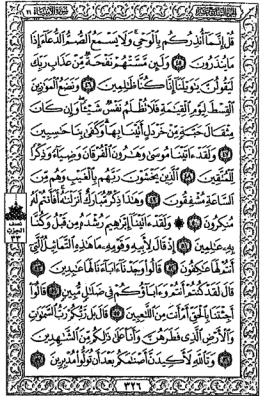 سورة الأنبياء ٢١
قُلْ إِنَّمَآ أُنذِرُكُم بِٱلْوَحْىِ وَلَا يَسْمَعُ ٱلصُّمُّ ٱلدُّعَآءَ إِذَا
مَا يُنذَرُونَ ٤٥ وَلَئِن مَّسَّتْهُمْ نَفْحَةٌ مِّنْ عَذَابِ رَبِّكَ
لَيَقُولُنَّ يَٰوَيْلَنَآ إِنَّا كُنَّا ظَٰلِمِينَ ٤٦ وَنَضَعُ ٱلْمَوَٰزِينَ
ٱلْقِسْطَ لِيَوْمِ ٱلْقِيَٰمَةِ فَلَا تُظْلَمُ نَفْسٌ شَيْـًٔا وَإِن كَانَ
مِثْقَالَ حَبَّةٍ مِّنْ خَرْدَلٍ أَتَيْنَا بِهَا وَكَفَىٰ بِنَا حَٰسِبِينَ
٤٧ وَلَقَدْ ءَاتَيْنَا مُوسَىٰ وَهَٰرُونَ ٱلْفُرْقَانَ وَضِيَآءً وَذِكْرًا
لِّلْمُتَّقِينَ ٤٨ ٱلَّذِينَ يَخْشَوْنَ رَبَّهُم بِٱلْغَيْبِ وَهُم مِّنَ
ٱلسَّاعَةِ مُشْفِقُونَ ٤٩ وَهَٰذَا ذِكْرٌ مُّبَارَكٌ أَنزَلْنَٰهُ أَفَأَنتُمْ لَهُۥ
مُنكِرُونَ ٥٠ ۞ وَلَقَدْ ءَاتَيْنَآ إِبْرَٰهِيمَ رُشْدَهُۥ مِن قَبْلُ وَكُنَّا
بِهِۦ عَٰلِمِينَ ٥١ إِذْ قَالَ لِأَبِيهِ وَقَوْمِهِۦ مَا هَٰذِهِ ٱلتَّمَاثِيلُ ٱلَّتِىٓ
أَنتُمْ لَهَا عَٰكِفُونَ ٥٢ قَالُوا۟ وَجَدْنَآ ءَابَآءَنَا لَهَا عَٰبِدِينَ ٥٣
قَالَ لَقَدْ كُنتُمْ أَنتُمْ وَءَابَآؤُكُمْ فِى ضَلَٰلٍ مُّبِينٍ ٥٤ قَالُوٓا۟
أَجِئْتَنَا بِٱلْحَقِّ أَمْ أَنتَ مِنَ ٱللَّٰعِبِينَ ٥٥ قَالَ بَل رَّبُّكُمْ رَبُّ ٱلسَّمَٰوَٰتِ
وَٱلْأَرْضِ ٱلَّذِى فَطَرَهُنَّ وَأَنَا۠ عَلَىٰ ذَٰلِكُم مِّنَ ٱلشَّٰهِدِينَ
٥٦ وَتَٱللَّهِ لَأَكِيدَنَّ أَصْنَٰمَكُم بَعْدَ أَن تُوَلُّوا۟ مُدْبِرِينَ ٥٧
نصف
الحزب
٣٣
٣٢٦